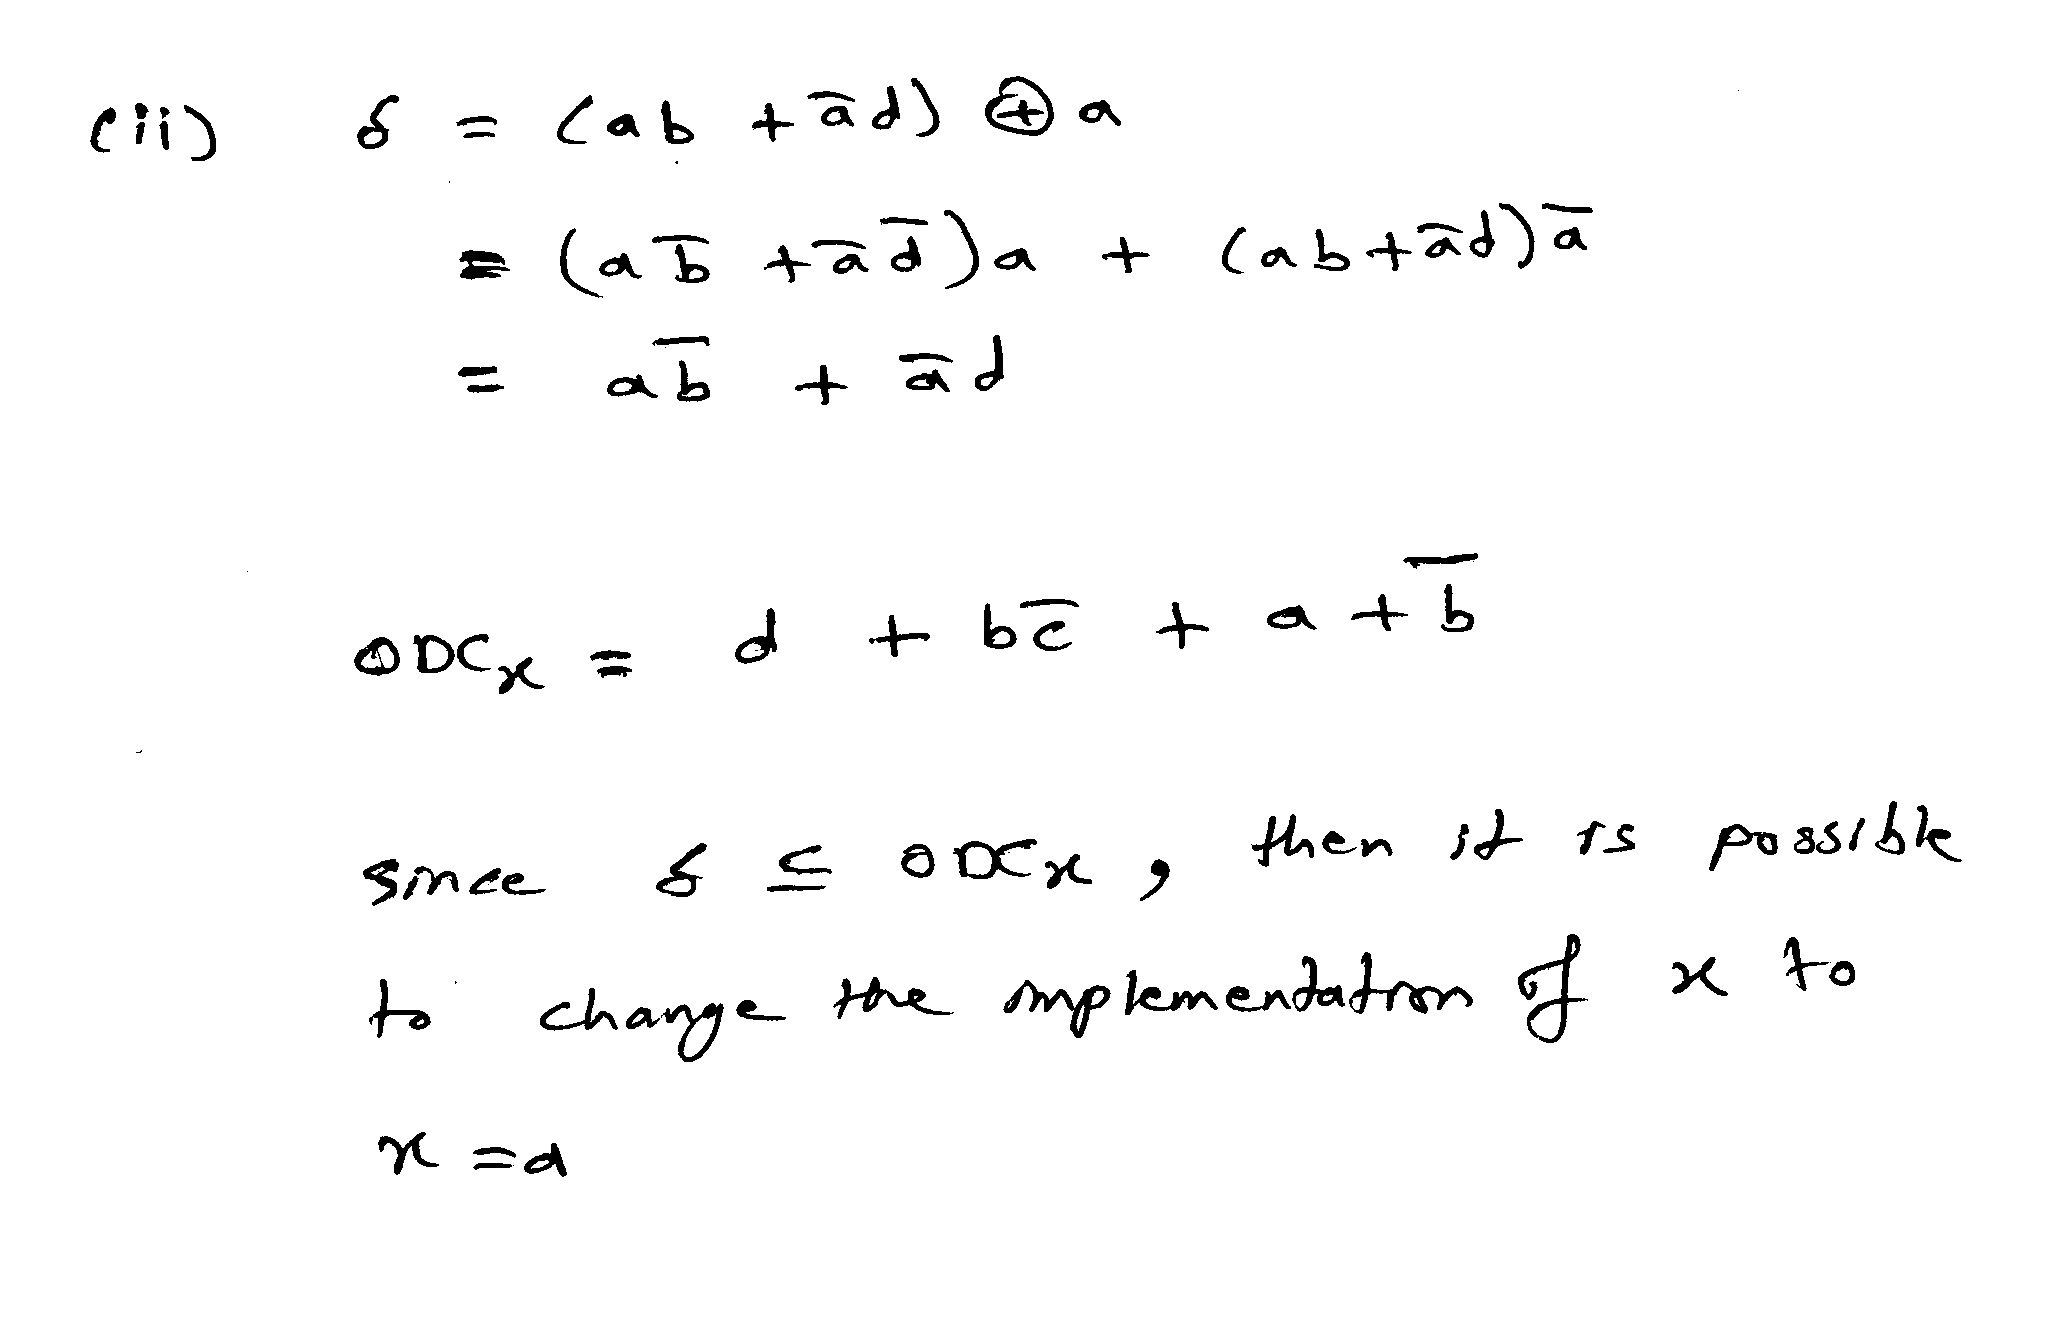 (ii) δ = (ab + a̅d) ⊕ a
= (ab̅ + a̅d̅)a + (ab + a̅d)a̅
= ab̅ + a̅d
ODCx = d + bc̅ + a + b̅
since δ ⊆ ODCx, then it is possible
to change the implementation of x to
x = a